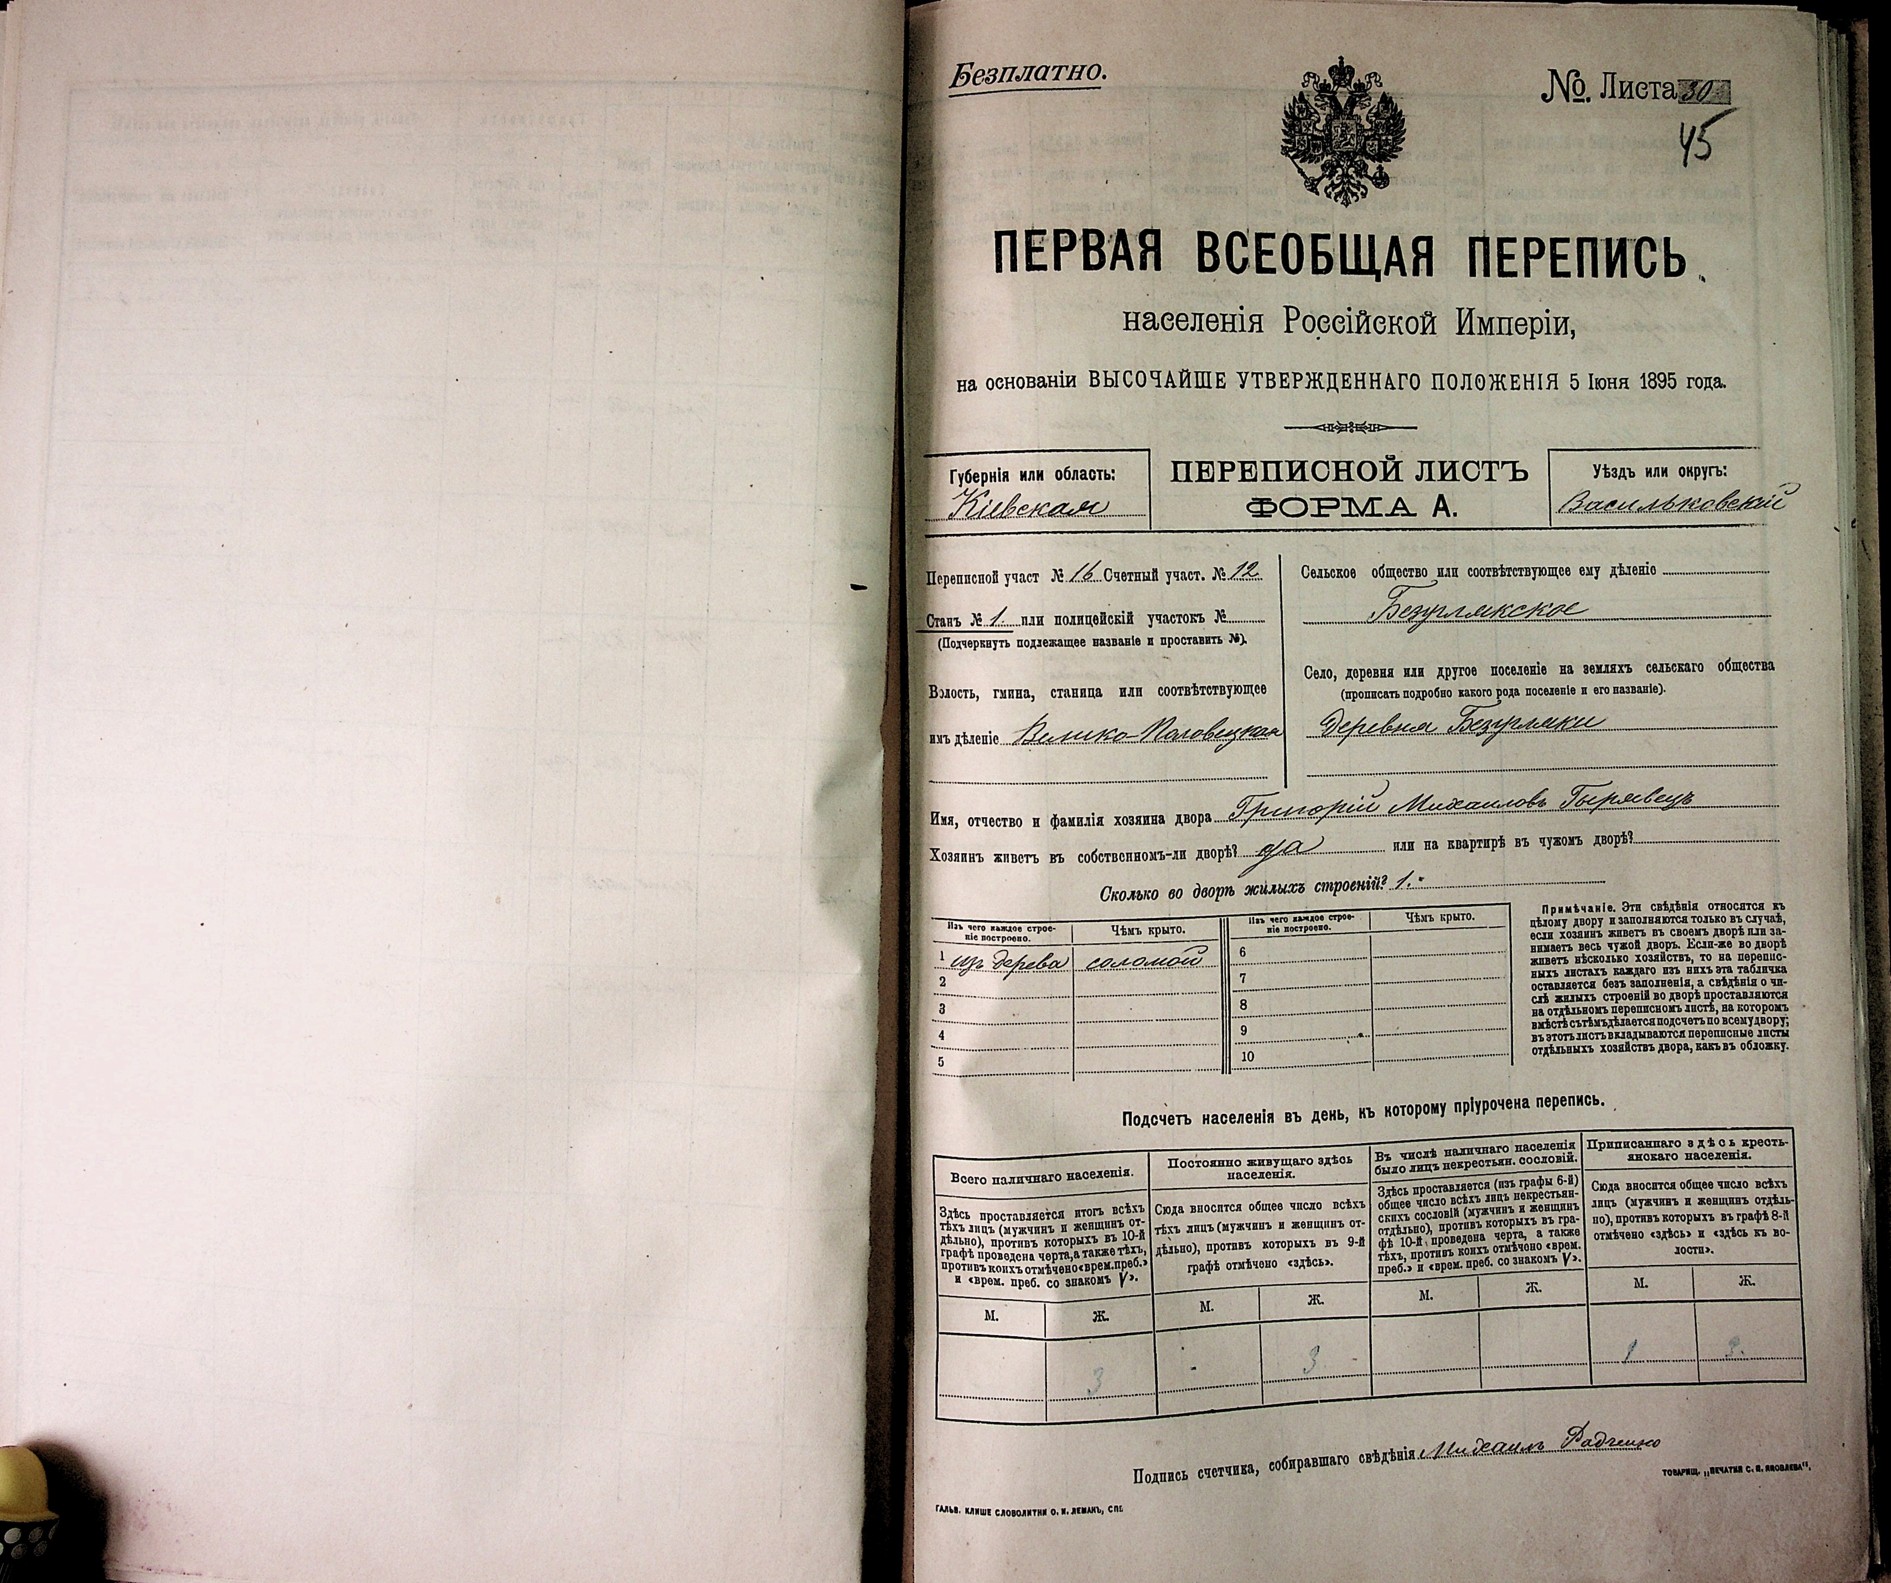 Безплатно.
№. Листа 30
45
ПЕРВАЯ ВСЕОБЩАЯ ПЕРЕПИСЬ
населенія Россійской Имперіи,
на основаніи ВЫСОЧАЙШЕ УТВЕРЖДЕННАГО ПОЛОЖЕНІЯ 5 Іюня 1895 года.
Губернія или область:
Кіевская
ПЕРЕПИСНОЙ ЛИСТЪ
ФОРМА А.
Уѣздъ или округъ:
Васильковскій
Переписной участ № 16 Счетный участ. № 12
Станъ № 1. или полицейскій участокъ №
(Подчеркнуть подлежащее названіе и проставить №).
Волость, гмина, станица или соотвѣтствующее
имъ дѣленіе Велико-Половецкая
Сельское общество или соотвѣтствующее ему дѣленіе
Безуглякское
Село, деревня или другое поселеніе на земляхъ сельскаго общества
(прописать подробно какого рода поселеніе и его названіе).
Деревня Безугляки
Имя, отчество и фамилія хозяина двора Григорій Михаиловъ
Хозяинъ живетъ въ собственномъ-ли дворѣ? да или на квартирѣ въ чужомъ дворѣ?
Сколько во дворѣ жилыхъ строеній? 1.
Изъ чего каждое строе-
ніе построено.
Чѣмъ крыто.
Изъ чего каждое строе-
ніе построено.
Чѣмъ крыто.
1 изъ дерева соломой
2
3
4
5
6
7
8
9
10
Примѣчаніе. Эти свѣдѣнія относятся къ
цѣлому двору и заполняются только въ случаѣ,
если хозяинъ живетъ въ своемъ дворѣ или за-
нимаетъ весь чужой дворъ. Если-же во дворѣ
живетъ нѣсколько хозяйствъ, то на перепис-
ныхъ листахъ каждаго изъ нихъ эта табличка
оставляется безъ заполненія, а свѣдѣнія о чи-
слѣ жилыхъ строеній во дворѣ проставляются
на отдѣльномъ переписномъ листѣ, на которомъ
вмѣстѣ съ тѣмъ дѣлается подсчетъ по всему двору;
въ этотъ листъ вкладываются переписные листы
отдѣльныхъ хозяйствъ двора, какъ въ обложку.
Подсчетъ населенія въ день, къ которому пріурочена перепись.
Всего наличнаго населенія.
Здѣсь проставляется итогъ всѣхъ
тѣхъ лицъ (мужчинъ и женщинъ от-
дѣльно), противъ которыхъ въ 10-й
графѣ проведена черта, а также тѣхъ,
противъ коихъ отмѣчено «врем. преб.»
и «врем. преб. со знакомъ V».
М. Ж.
3
Постоянно живущаго здѣсь
населенія.
Сюда вносится общее число всѣхъ
тѣхъ лицъ (мужчинъ и женщинъ от-
дѣльно), противъ которыхъ въ 9-й
графѣ отмѣчено «здѣсь».
М. Ж.
- 3
Въ числѣ наличнаго населенія
было лицъ некрестьян. сословій.
Здѣсь проставляется (изъ графы 6-й)
общее число всѣхъ лицъ некрестьян-
скихъ сословій (мужчинъ и женщинъ
отдѣльно), противъ которыхъ въ гра-
фѣ 10-й проведена черта, а также
тѣхъ, противъ коихъ отмѣчено «врем.
преб.» и «врем. преб. со знакомъ V».
М. Ж.
Приписаннаго здѣсь кресть-
янскаго населенія.
Сюда вносится общее число всѣхъ
лицъ (мужчинъ и женщинъ отдѣль-
но), противъ которыхъ въ графѣ 8-й
отмѣчено «здѣсь» и «здѣсь въ во-
лости».
М. Ж.
1 3.
Подпись счетчика, собиравшаго свѣдѣнія Михаилъ Радченко
ТОВАРИЩ. „ПЕЧАТНЯ С. П. ЯКОВЛЕВА".
ГАЛЬВ. КЛИШЕ СЛОВОЛИТНИ О. И. ЛЕМАНЪ, СПБ